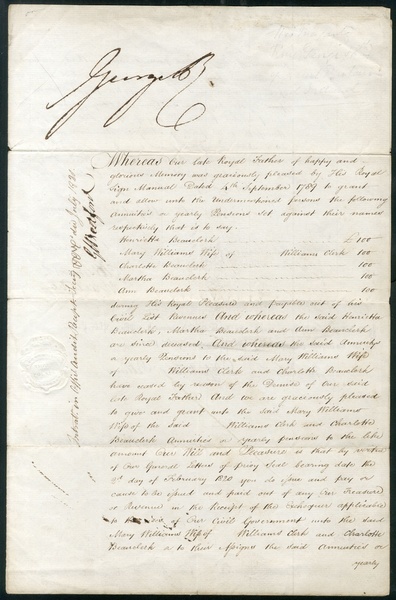 George R
Whereas Our late Royal Father of happy and
glorious Memory was graciously pleased by His Royal
Sign Manual Dated 4th September 1789 to grant
and allow unto the Undermentioned persons the following
Annuities or yearly Pensions set against their names
respectively that is to say
Henrietta Beauclerk £100
Mary Williams Wife of Williams Clerk 100
Charlotte Beauclerk 100
Martha Beauclerk 100
Ann Beauclerk 100
during His Royal Pleasure and payable out of his
Civil List Revenues And whereas the said Henrietta
Beauclerk, Martha Beauclerk and Ann Beauclerk
are since deceased, And whereas the said Annuity
or yearly Pensions to the said Mary Williams Wife
of Williams Clerk and Charlotte Beauclerk
have ceased by reason of the Demise of our said
late Royal Father And we are graciously pleased
to give and grant unto the said Mary Williams
Wife of the said Williams Clerk and Charlotte
Beauclerk Annuities or yearly pensions to the like
amount Our Will and Pleasure is that by virtue
of Our General Letters of privy Seal bearing date the
day of February 1820 you do issue and pay or
cause to be issued and paid out of any Our Treasure
or Revenue in the Receipt of the Exchequer applicable
to the uses of Our Civil Government unto the said
Mary Williams Wife of Williams Clerk and Charlotte
Beauclerk or to their Assigns the said Annuities or
yearly
Bedford
July 1820